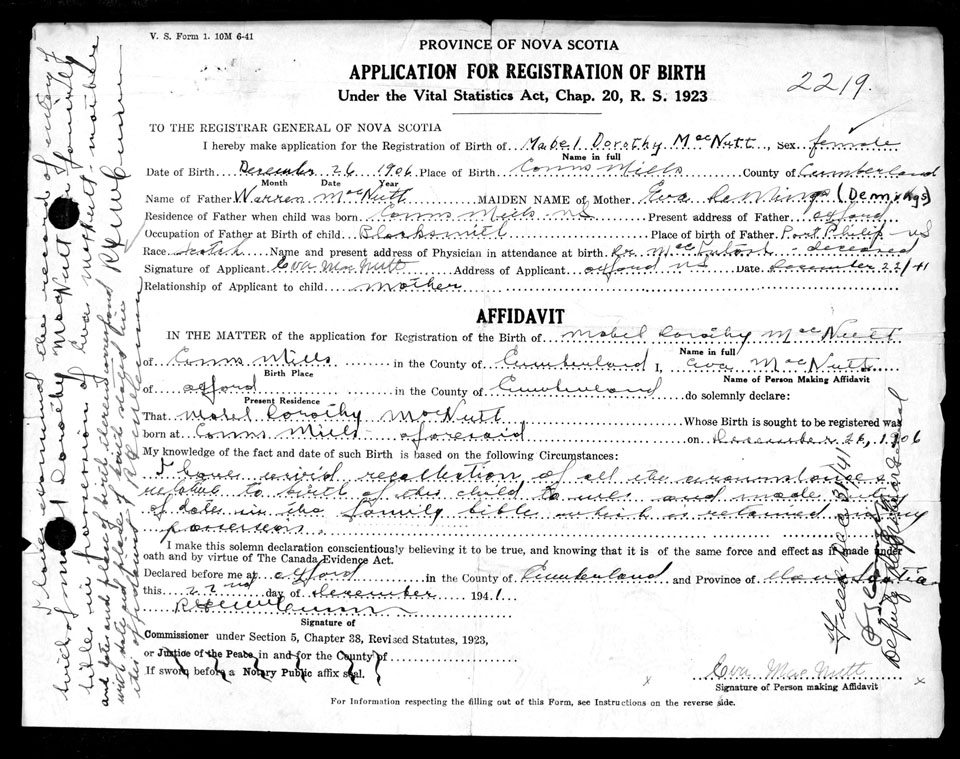 V. S. Form 1. 10M 6-41
PROVINCE OF NOVA SCOTIA
APPLICATION FOR REGISTRATION OF BIRTH
2219.
Under the Vital Statistics Act, Chap. 20, R. S. 1923
TO THE REGISTRAR GENERAL OF NOVA SCOTIA
I hereby make application for the Registration of Birth of Mabel Dorothy MacNutt, Sex female
Name in full
Date of Birth December 26 1906 Place of Birth Conns Mills County of Cumberland
Month Date Year
Name of Father Warren MacNutt MAIDEN NAME of Mother Eva (Demings)
Residence of Father when child was born Conns Mills NS Present address of Father oxford
Occupation of Father at Birth of child Blacksmith Place of birth of Father Port Philip NS
Race Scotch Name and present address of Physician in attendance at birth Dr. MacIntosh deceased
Signature of Applicant Eva MacNutt Address of Applicant oxford NS Date December 22/41
Relationship of Applicant to child mother
AFFIDAVIT
IN THE MATTER of the application for Registration of the Birth of Mabel Dorothy MacNutt
Name in full
of Conns Mills in the County of Cumberland I, Eva MacNutt
Birth Place Name of Person Making Affidavit
of oxford in the County of Cumberland do solemnly declare:
Present Residence
That Mabel Dorothy MacNutt Whose Birth is sought to be registered was
born at Conns Mills aforesaid on December 26, 1906
My knowledge of the fact and date of such Birth is based on the following Circumstances:
I have vivid recollection of all the circumstances
relative to birth of this child to me and made entry
of date in the family bible which is retained in my
possession.
I make this solemn declaration conscientiously believing it to be true, and knowing that it is of the same force and effect as if made under
oath and by virtue of The Canada Evidence Act.
Declared before me at oxford in the County of Cumberland and Province of Nova Scotia
this 22nd day of December 1941
Signature of
Commissioner under Section 5, Chapter 38, Revised Statutes, 1923,
or Justice of the Peace in and for the County of
If sworn before a Notary Public affix seal.
Eva MacNutt
x x
Signature of Person making Affidavit
For Information respecting the filling out of this Form, see Instructions on the reverse side.
I have examined the record of entry of
birth of Mabel Dorothy MacNutt in family
bible in possession of Eva MacNutt mother
and date and place of birth
Filed Dec 31/41
Deputy Registrar General